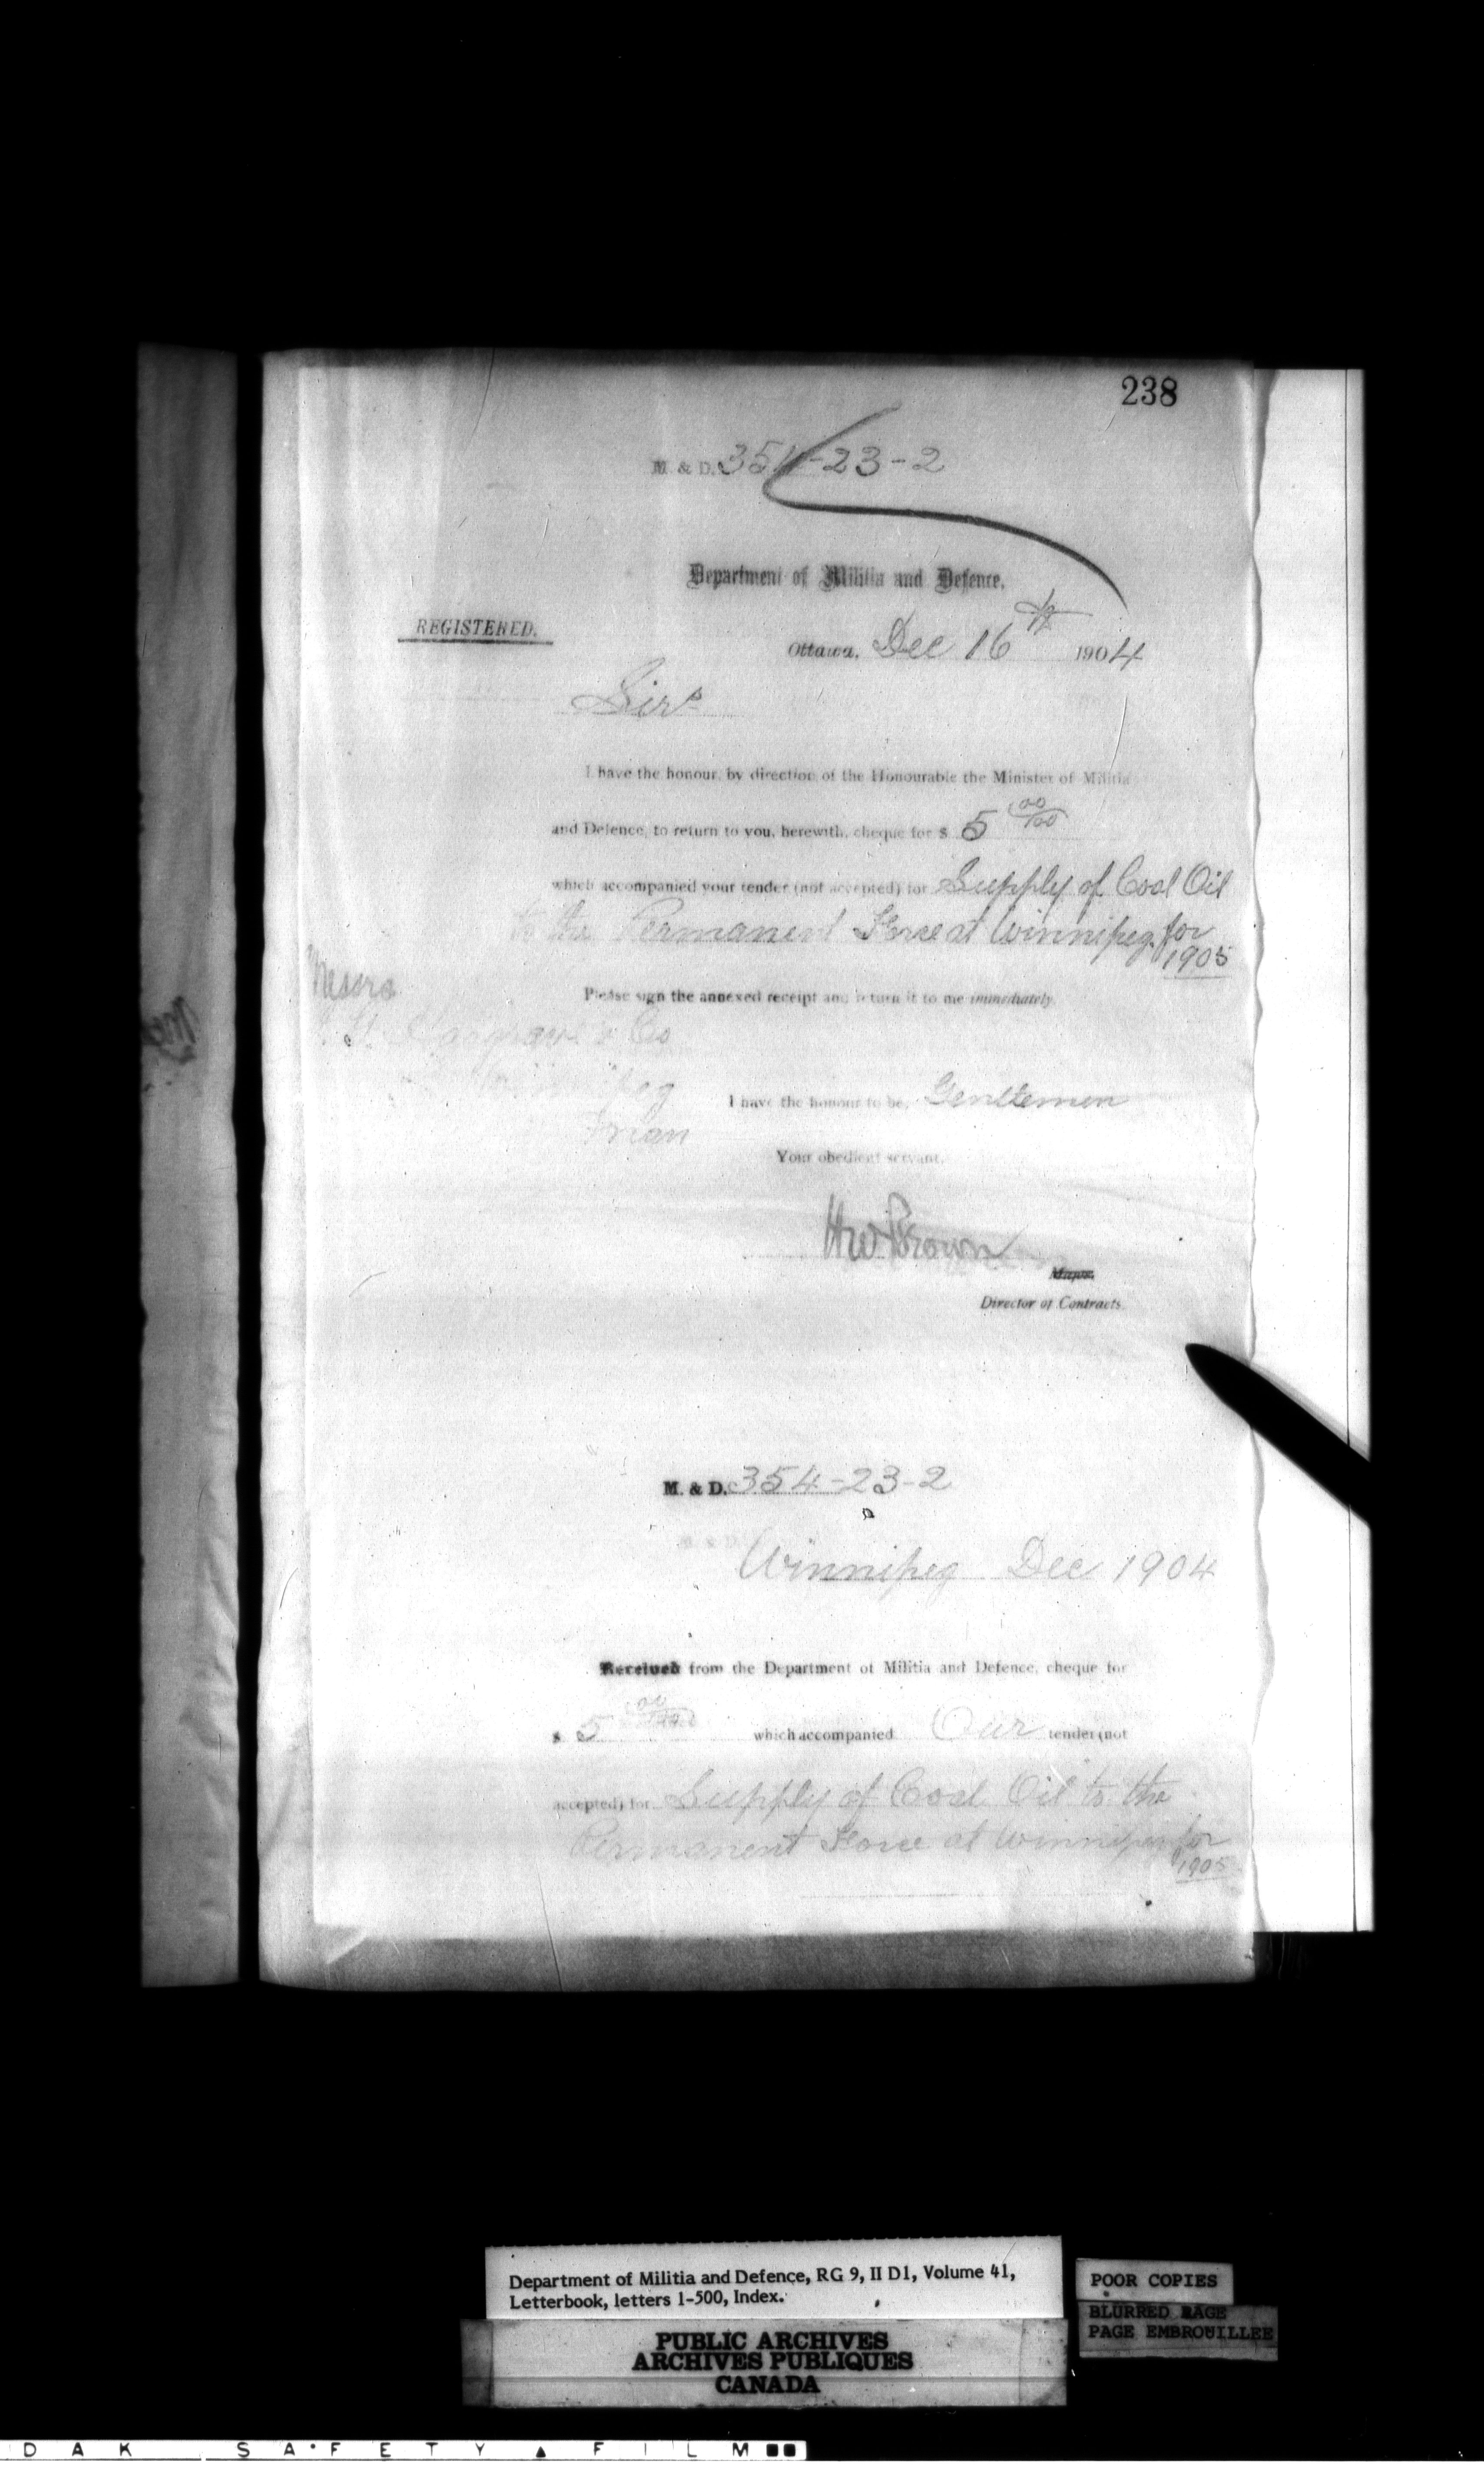 238
M. & D. 354-23-2
Department of Militia and Defence.
REGISTERED.
Ottawa, Dec 16th 1904
Sirs
I have the honour, by direction of the Honourable the Minister of Militia
and Defence, to return to you, herewith, cheque for $ 5 00/100
which accompanied your tender (not accepted) for Supply of Coal Oil
to the Permanent Force at Winnipeg for
1905
Messrs
Please sign the annexed receipt and return it to me immediately.
& Co
Winnipeg
Man
I have the honour to be, Gentlemen
Your obedient servant,
HW Brown
Major,
Director of Contracts.
M. & D. 354-23-2
Winnipeg Dec 1904
Received from the Department of Militia and Defence, cheque for
$ 5 00/100 which accompanied Our tender (not
accepted) for Supply of Coal Oil to the
Permanent Force at Winnipeg for
1905
Department of Militia and Defence, RG 9, II D1, Volume 41,
Letterbook, letters 1-500, Index.
POOR COPIES
BLURRED PAGE
PAGE EMBROUILLEE
PUBLIC ARCHIVES
ARCHIVES PUBLIQUES
CANADA
DAK SAFETY FILM